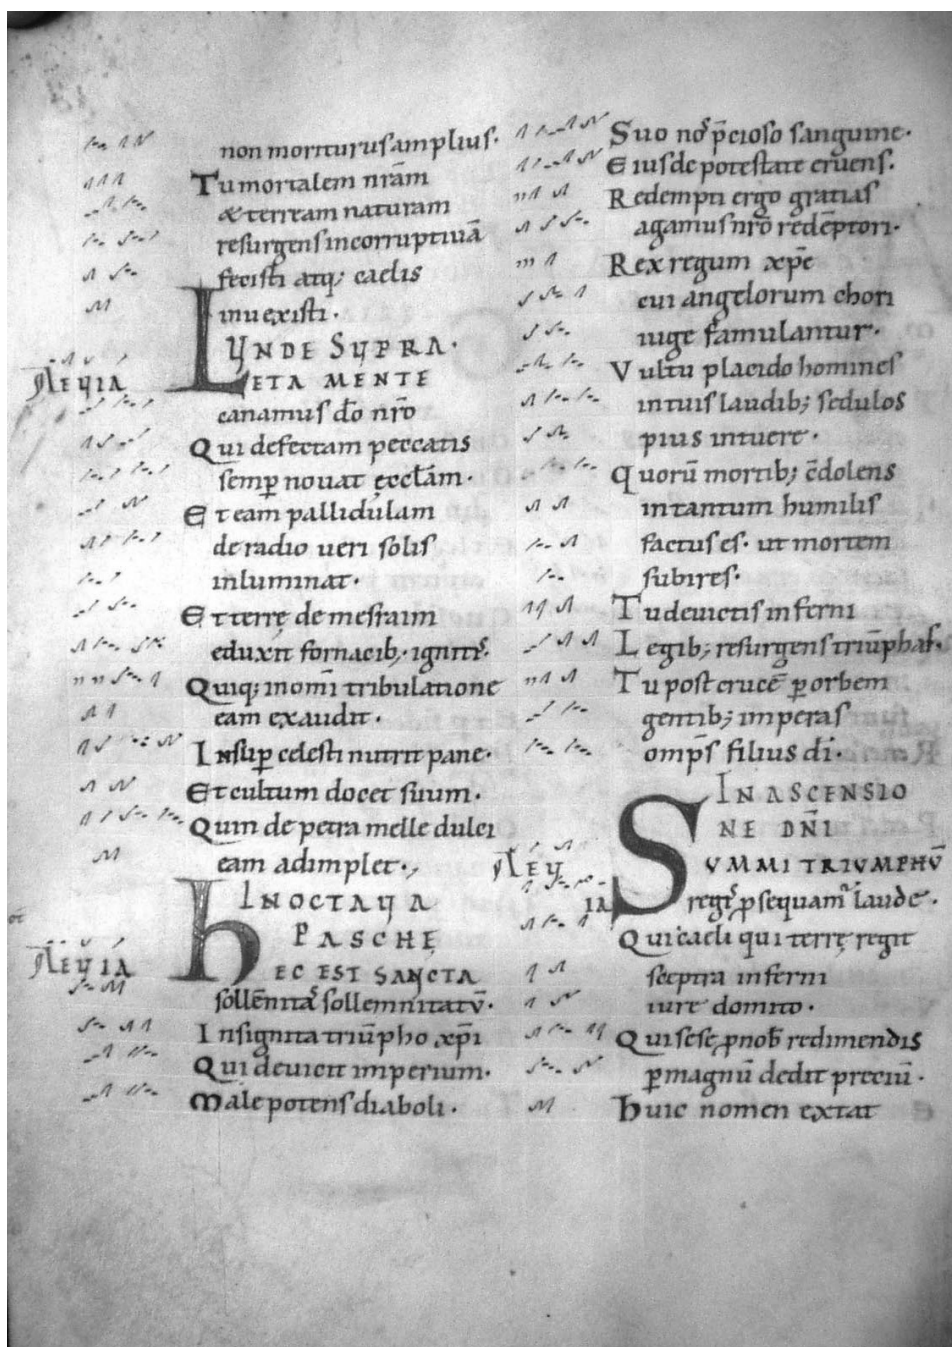 non moriturus amplius.
Tu mortalem nr̄am
& terream naturam
resurgens incorruptiuā
fecisti atq; caelis
inuexisti.
UNDE SUPRA.
LAETA MENTE
canamus dō nr̄o
Qui defectam peccatis
semp̱ nouat ęccl̄am.
Et eam pallidulam
de radio ueri solis
inluminat.
Et terrę de mesraim
eduxit fornacib; ignitis.
Quiq; in omī tribulatione
eam exaudit.
Insup̱ celesti nutrit pane.
Et cultum docet suum.
Quin de petra melle dulci
eam adimplet.,
IN OCTAUA
PASCHE
HEC EST SANCTA
sollēnitas sollemnitatū.
Insignita triūpho xp̄i
Qui deuicit imperium.
Male potens diaboli.
AEUIA
AEUIA
Suo nos p̄cioso sanguine.
Eius de potestate eruens.
Redempti ergo gratias
agamus nr̄o redēptori.
Rex regum xp̄e
cui angelorum chori
iuge famulantur.
Vultu placido homines
intuis laudib; sedulos
pius intuere.
quorū mortib; cōdolens
intantum humilis
factus es. ut mortem
subires.
Tu deuictis inferni
Legib; resurgens triūphas.
Tu post crucē p̱ orbem
gentib; imperas
omp̄s filius dī.
IN ASCENSIO
NE DN̄I
SUMMI TRIUMPHŪ
regis p̱sequamur laude.
Qui caeli qui terrę regit
sceptra inferni
iure domito.
Qui sese p̱ nob̄ redimendis
p̱magnū dedit preciū.
huic nomen extat
AEU
IA